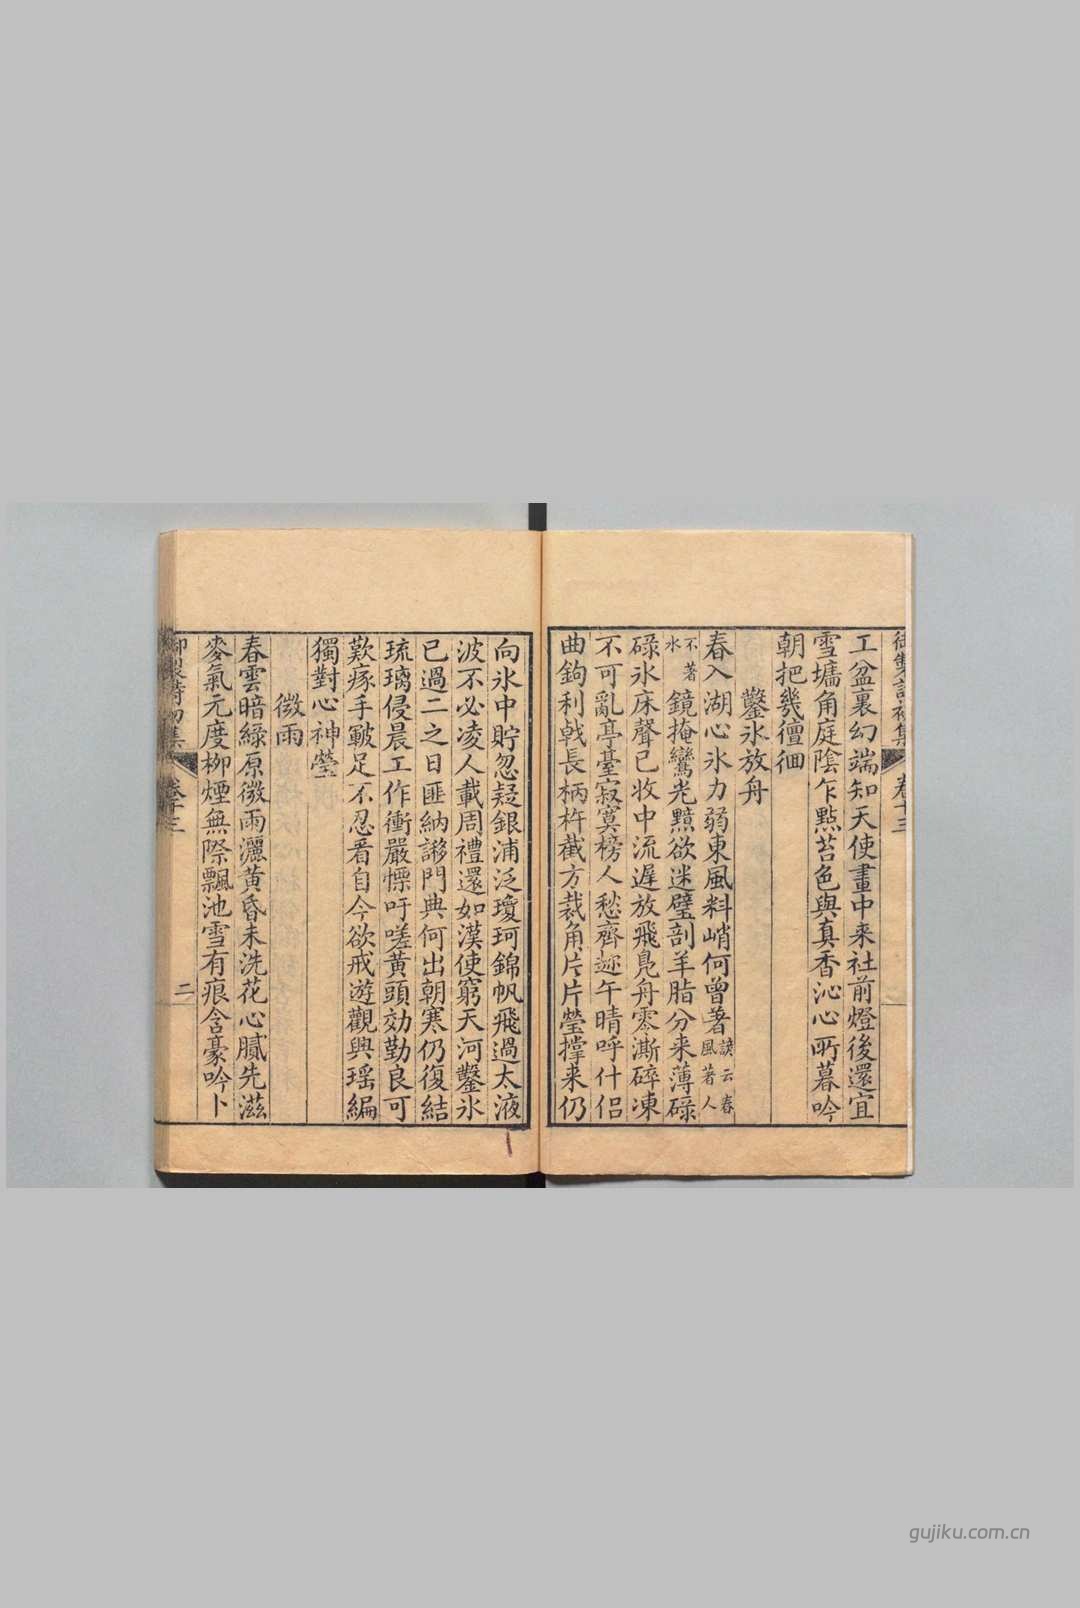 工盆裏幻端知天使畫中来社前燈後還宜
雪墉角庭陰乍㸃苔色與真香沁心所暮吟
朝把幾徻徊
鑿氷放舟
春入湖心氷力弱東風料峭何曾著諺云春風著人
不著水鏡掩鸞光黯欲迷璧剖羊脂分来薄碌
碌氷床聲已收中流遲放飛鳧舟零澌碎凍
不可亂亭臺寂寞榜人愁齊趂午晴呼什侣
曲鉤利戟長柄杵截方裁角片片瑩撑来仍
向氷中貯忽疑銀浦泛瓊珂錦帆飛過太液
波不必凌人載周禮還如漢使窮天河鑿氷
已過二之日匪納謻門典何出朝寒仍復結
琉璃侵晨工作衝嚴慄吁嗟黄頭効勤良可
歎瘃手皸足不忍看自今欲戒遊觀興瑶編
獨對心神瑩
微雨
春雲暗綠原微雨灑黄昏未洗花心膩先滋
麥氣元度柳煙無際飄池雪有痕含豪吟卜
御製詩初集 卷十三 二
gujiku.com.cn